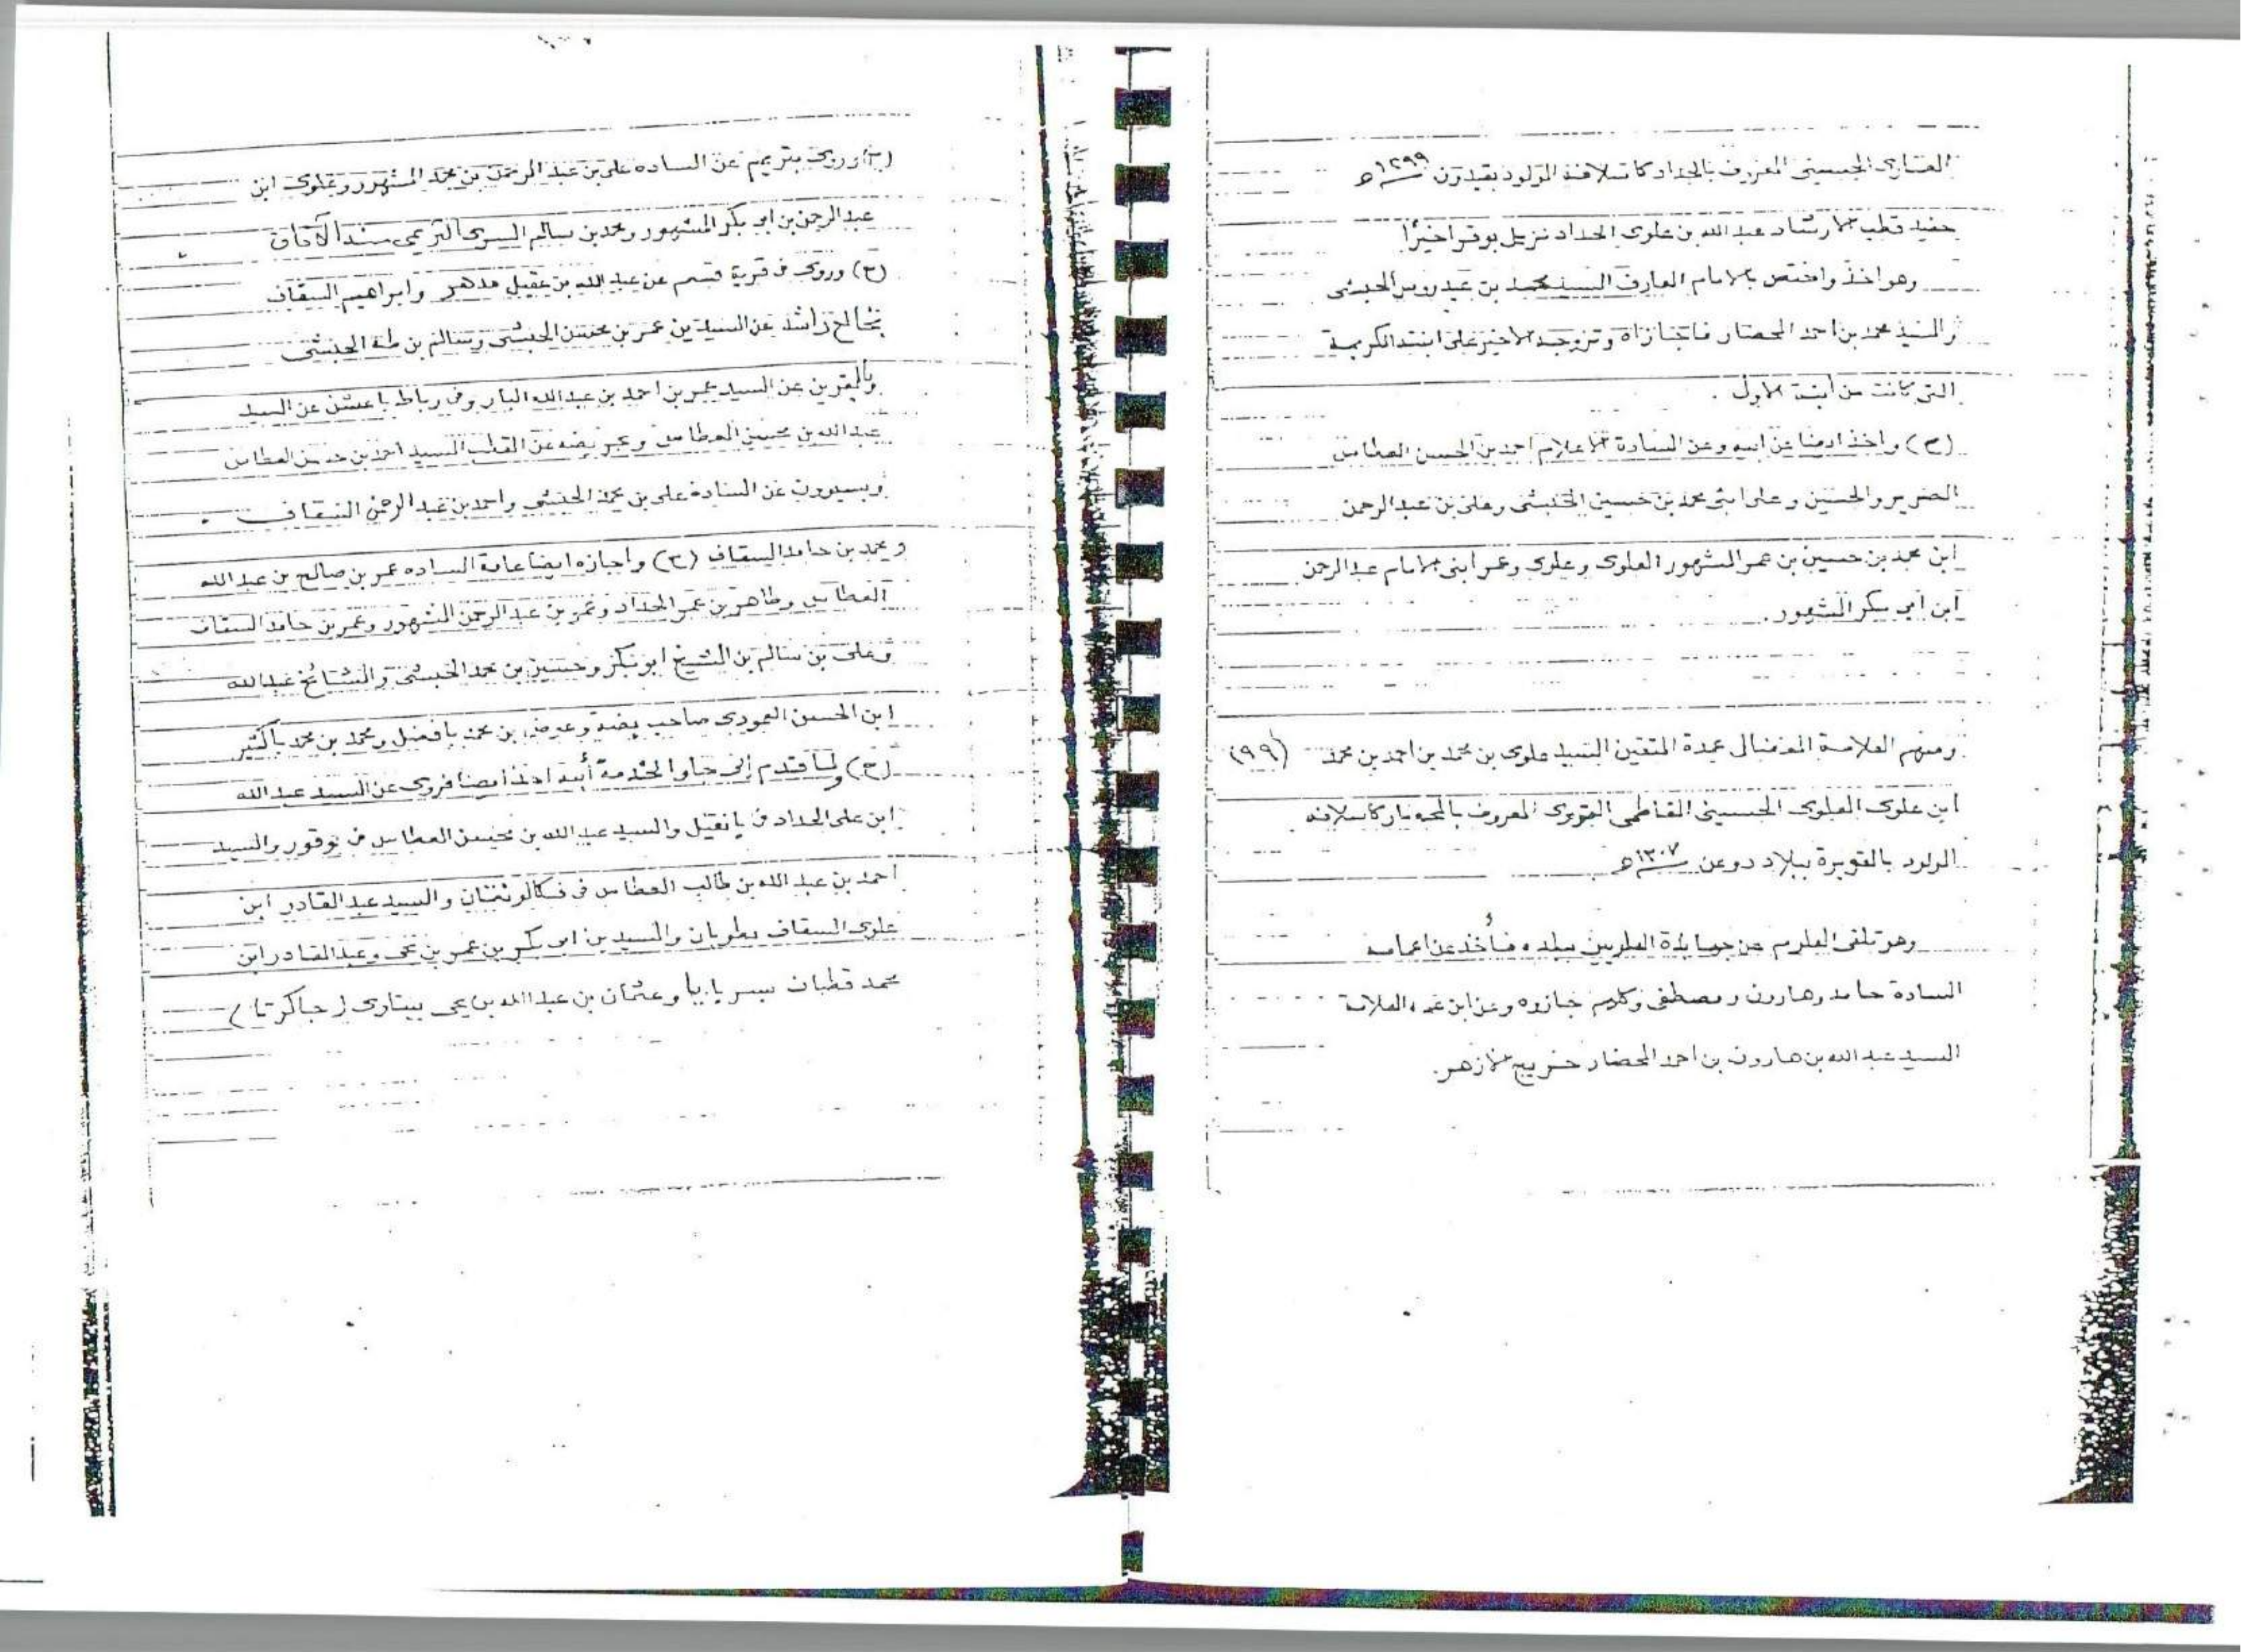 العلوى الحسينى المعروف بالحداد كاسلافه المولود بقيدون ١٢٩٩ هـ
حفيد قطب الارشاد عبد الله بن علوى الحداد نزيل بوقر اخيراً.
وهو اخذ واختص بالامام العارف السيد محمد بن عيدروس الحبشى
والسيد محمد بن احمد المحضار فاجازاه وتزوجه الاخير على ابنته الكريمة
التى كانت من ابنة الاول .
(ح) واخذ ايضا عن ابيه وعن السادة الاعلام احمد بن الحسن العطاس
الضرير والحسين وعلى ابنى محمد بن حسين الحبشى وعلى بن عبد الرحمن
ابن محمد بن حسين بن عمر المشهور العلوى وعلوى وعمر ابنى الامام عبد الرحمن
ابن ابى بكر المشهور.
ومنهم العلامة المفضال عمدة المتقين السيد علوى بن محمد بن احمد بن محمد (٩٩)
ابن علوى العلوى الحسينى الفاطمى القويرى المعروف بالمحضار كاسلافه
المولود بالقويرة ببلاد دوعن ١٣٠٧ هـ
وهو تلقى العلوم عن جهابذة العلويين ببلده فأخذ عن اعمامه
السادة حامد وهارون ومصطفى وكلهم اجازوه وعن ابن عمه العلامة
السيد عبد الله بن هارون بن احمد المحضار خريج الازهر.
(ح) وروى بتريم عن الساده على بن عبد الرحمن بن محمد المشهور وعلوى ابن
عبد الرحمن بن ابو بكر المشهور ومحمد بن سالم السرى التريمى مسند الآفاق
(ح) وروى فى قرية قسم عن عبد الله بن عقيل مدهر وابراهيم السقاف
بخالع راشد عن السيدين عمر بن محسن الحبشى وسالم بن طه الحبشى
وبالقرين عن السيد عمر بن احمد بن عبد الله البار وفى رباط باعشن عن السيد
عبد الله بن محسن العطاس وبحريضه عن القطب السيد احمد بن حسن العطاس
وبسيوون عن السادة على بن محمد الحبشى واحمد بن عبد الرحمن السقاف .
ومحمد بن حامد السقاف (ح) واجازه ايضا عامة الساده عمر بن صالح بن عبد الله
العطاس وطاهر بن عمر الحداد وعمر بن عبد الرحمن المشهور وعمر بن حامد السقاف
وعلى بن سالم بن الشيخ ابو بكر وحسين بن محمد الحبشى والمشائخ عبد الله
ابن الحسن العمودى صاحب بضة وعوض بن محمد بافضل ومحمد بن محمد باكثير
(ح) ولما قدم إلى جاوا لخدمة أبيه اخذ ايضا فروى عن السيد عبد الله
ابن على الحداد فى بانقيل والسيد عبد الله بن محسن العطاس فى بوقور والسيد
احمد بن عبد الله بن طالب العطاس فى فكالونقان والسيد عبد القادر ابن
علوى السقاف بطوبان والسيدين ابى بكر بن عمر بن يحى وعبد القادر ابن
محمد قطبان بسربايا وعثمان بن عبد الله بن يحى ببتاوى (جاكرتا)